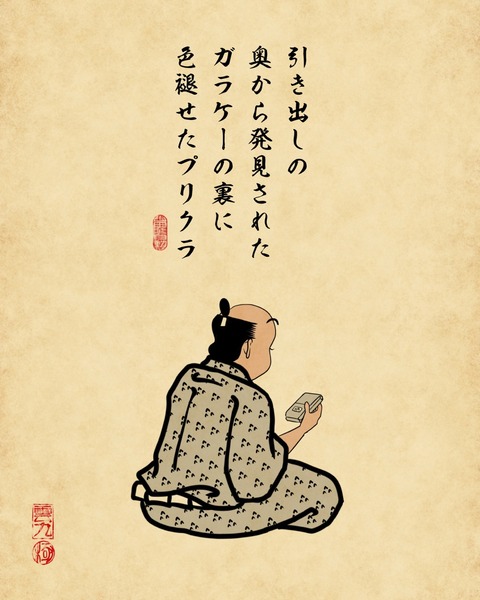 引き出しの
奥から発見された
ガラケーの裏に
色褪せたプリクラ